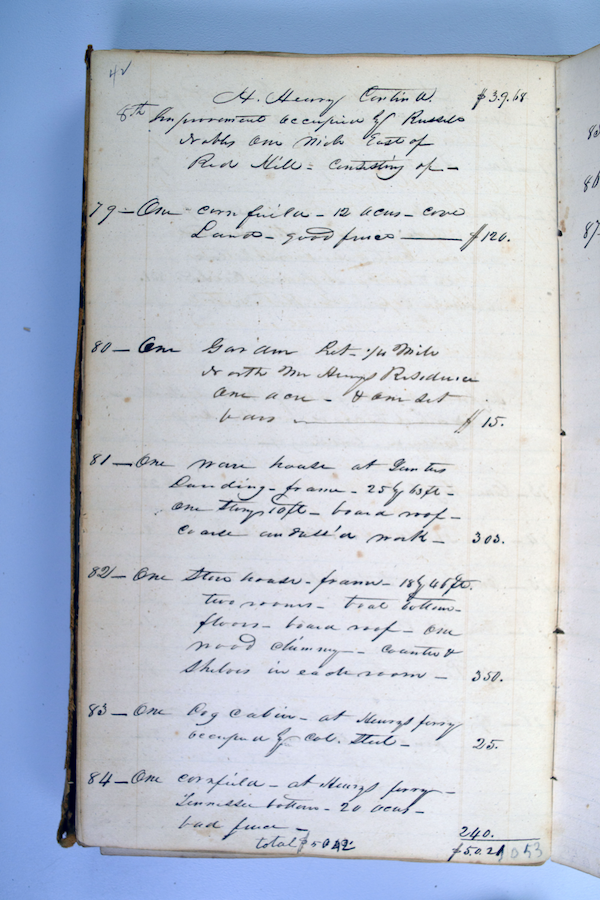 42
H. Henry Contin'd. $ 3.9.68
8th Improvement occupied by Russels
Nobbs One Mile East of
Red Hill - Consisting of -
79 - One cornfield - 12 acres - cove
Land - good fence — $ 120.
80 - One Garden Lot - 1/4 Mile
North Mr Henrys Residence
One acre - & one set
bars — $ 15.
81 - One ware house at Gunters
Landing - frame - 25 by 63 ft -
One Story 10 ft - board roof -
Coarse work - 303.
82 - One Store house - frame - 18 by 46 ft.
two rooms - boat bottom -
floors - board roof - One
wood chimny - Counter &
Shelves in each room - 350.
83 - One Log Cabin - at Henrys ferry
occupied by Col. Steel - 25.
84 - One cornfield - at Henrys ferry -
Tennissee bottom - 20 acres -
bad fence - 240.
total $ 5042 $ 5.0.21